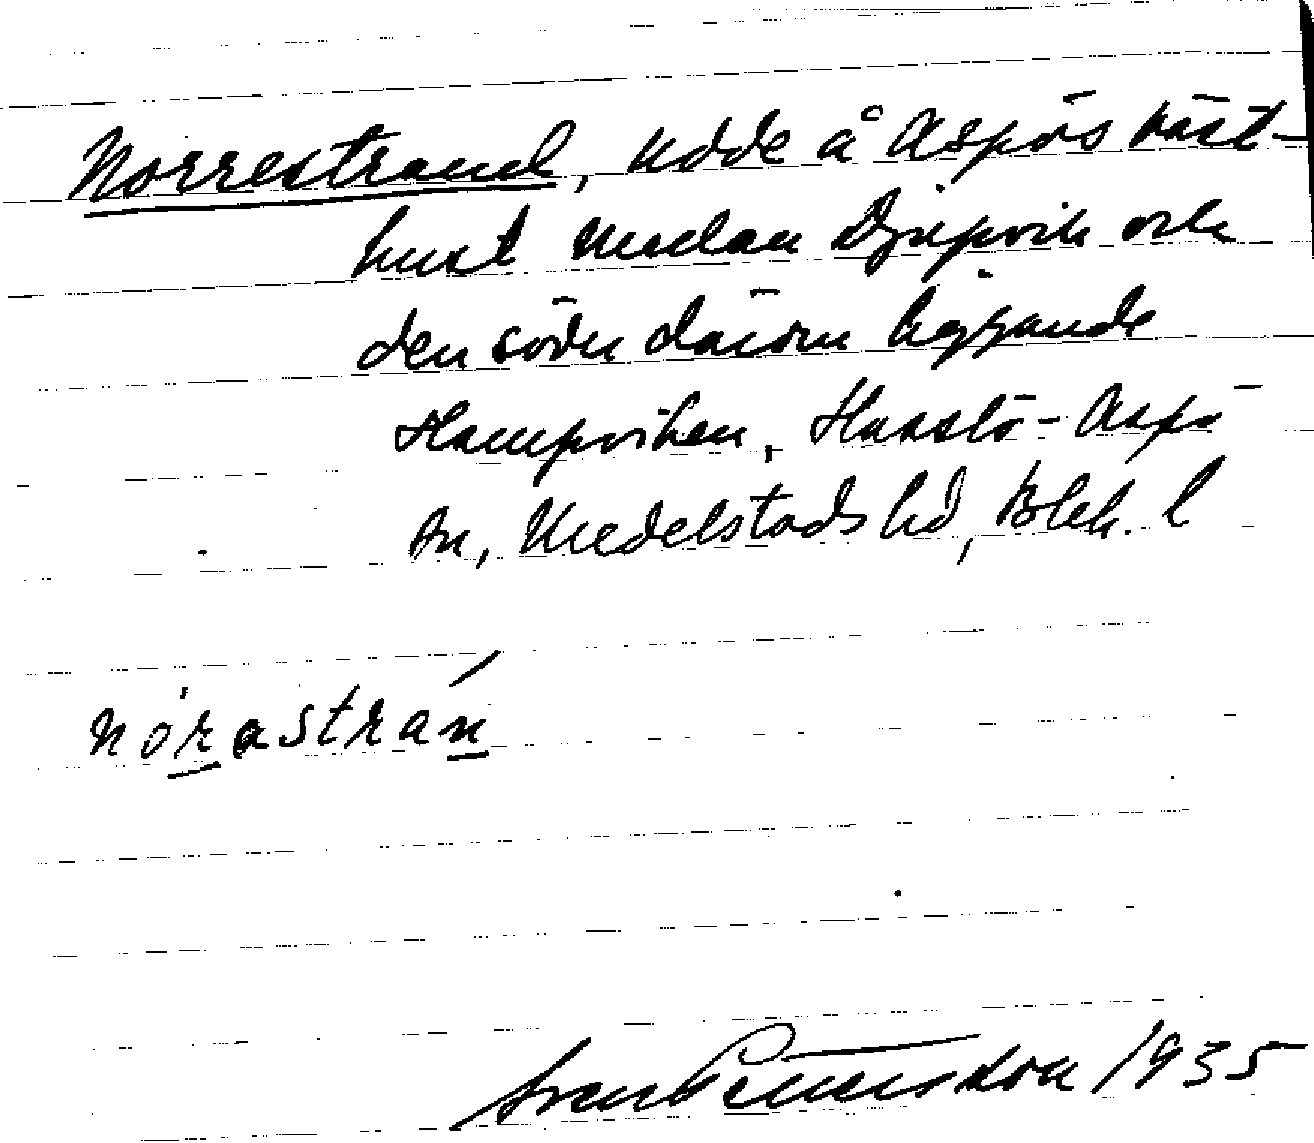 Norrestrand, udde å Aspös väst-
kust mellan Djupvik och
den söder därom liggande
Hampviken, Hasslö-Aspö
sn, Medelstads hd, Blek. l
nórastrán
Sven Benson 1935